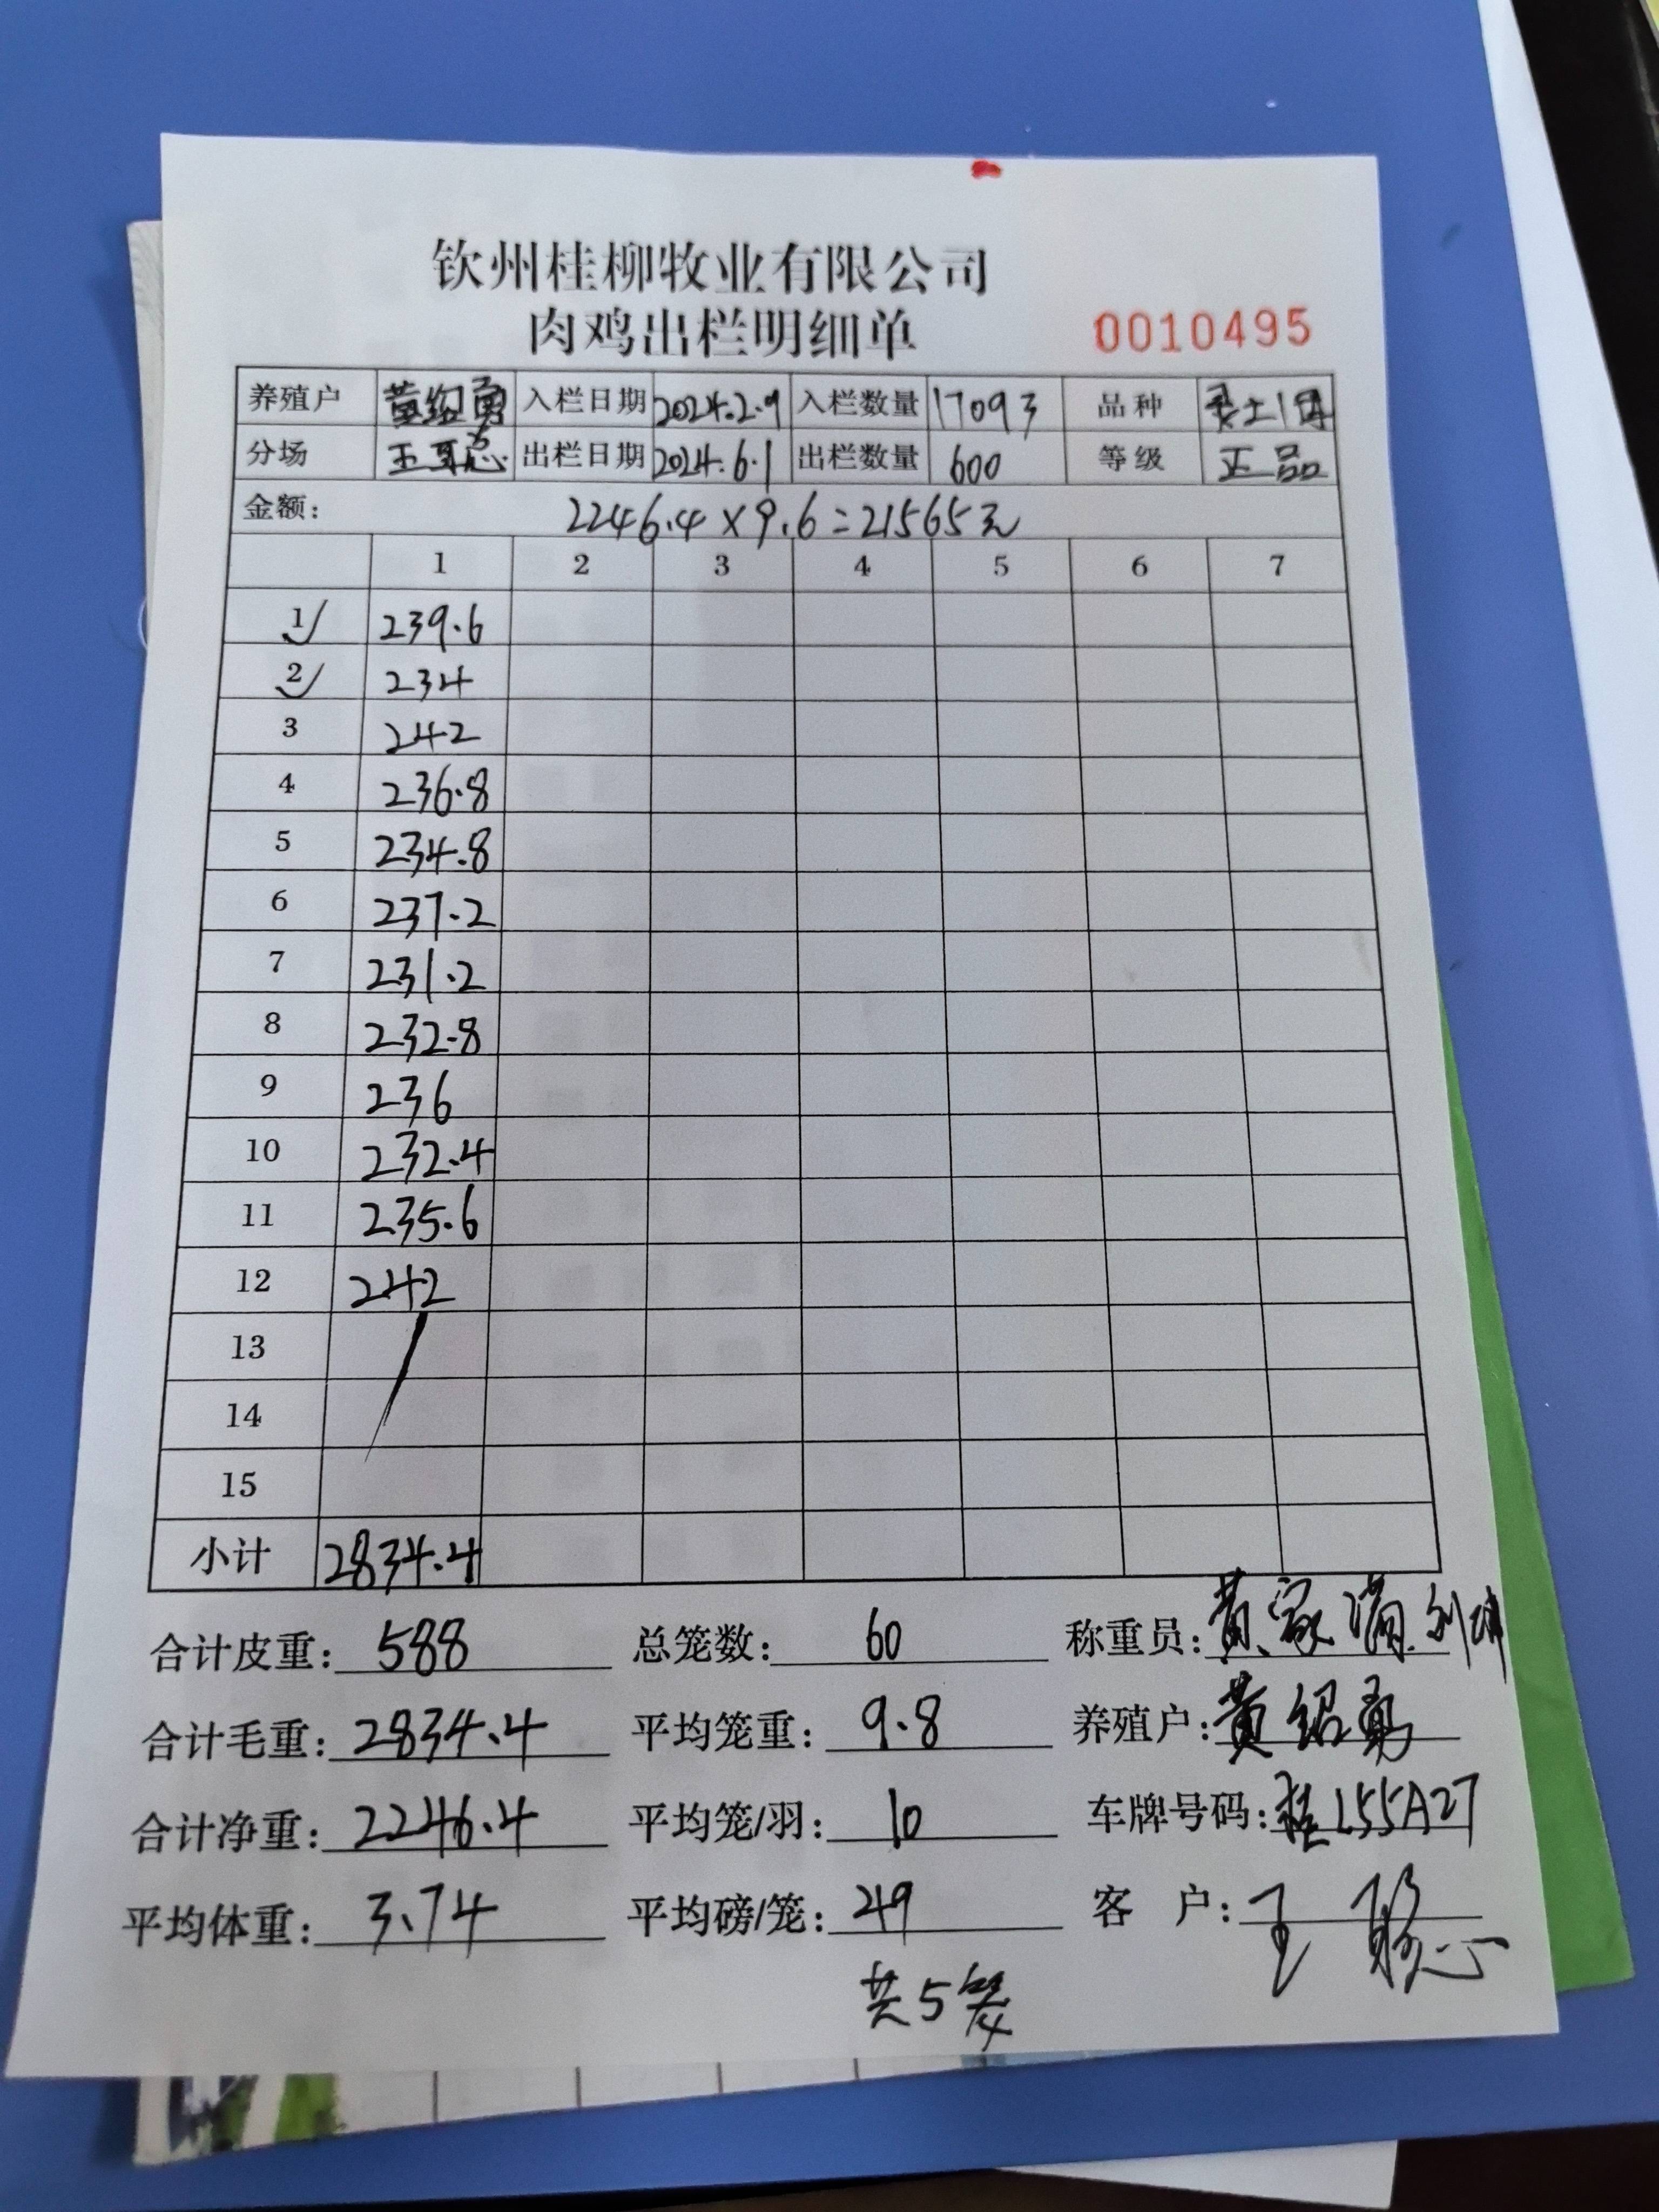 钦州桂柳牧业有限公司
肉鸡出栏明细单 0010495
养殖户 黄绍勇 入栏日期 2024.2.9 入栏数量 17093 品种
分场 王聪 出栏日期 2024.6.1 出栏数量 600 等级 正品
金额: 2246.4×9.6=21565元
1 2 3 4 5 6 7
1 239.6
2 234
3 242
4 236.8
5 234.8
6 237.2
7 231.2
8 232.8
9 236
10 232.4
11 235.6
12 242
13
14
15
小计 2834.4
合计皮重: 588 总笼数: 60 称重员: 黄家满
合计毛重: 2834.4 平均笼重: 9.8 养殖户: 黄绍勇
合计净重: 2246.4 平均笼/羽: 10 车牌号码: 桂L55A27
平均体重: 3.74 平均磅/笼: 49 客户: 王聪
共5笼